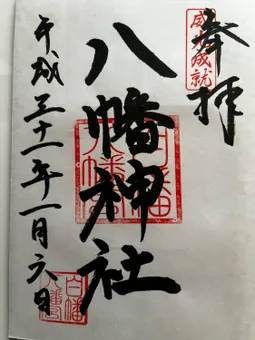 奉拝
八幡神社
平成三十一年一月六日